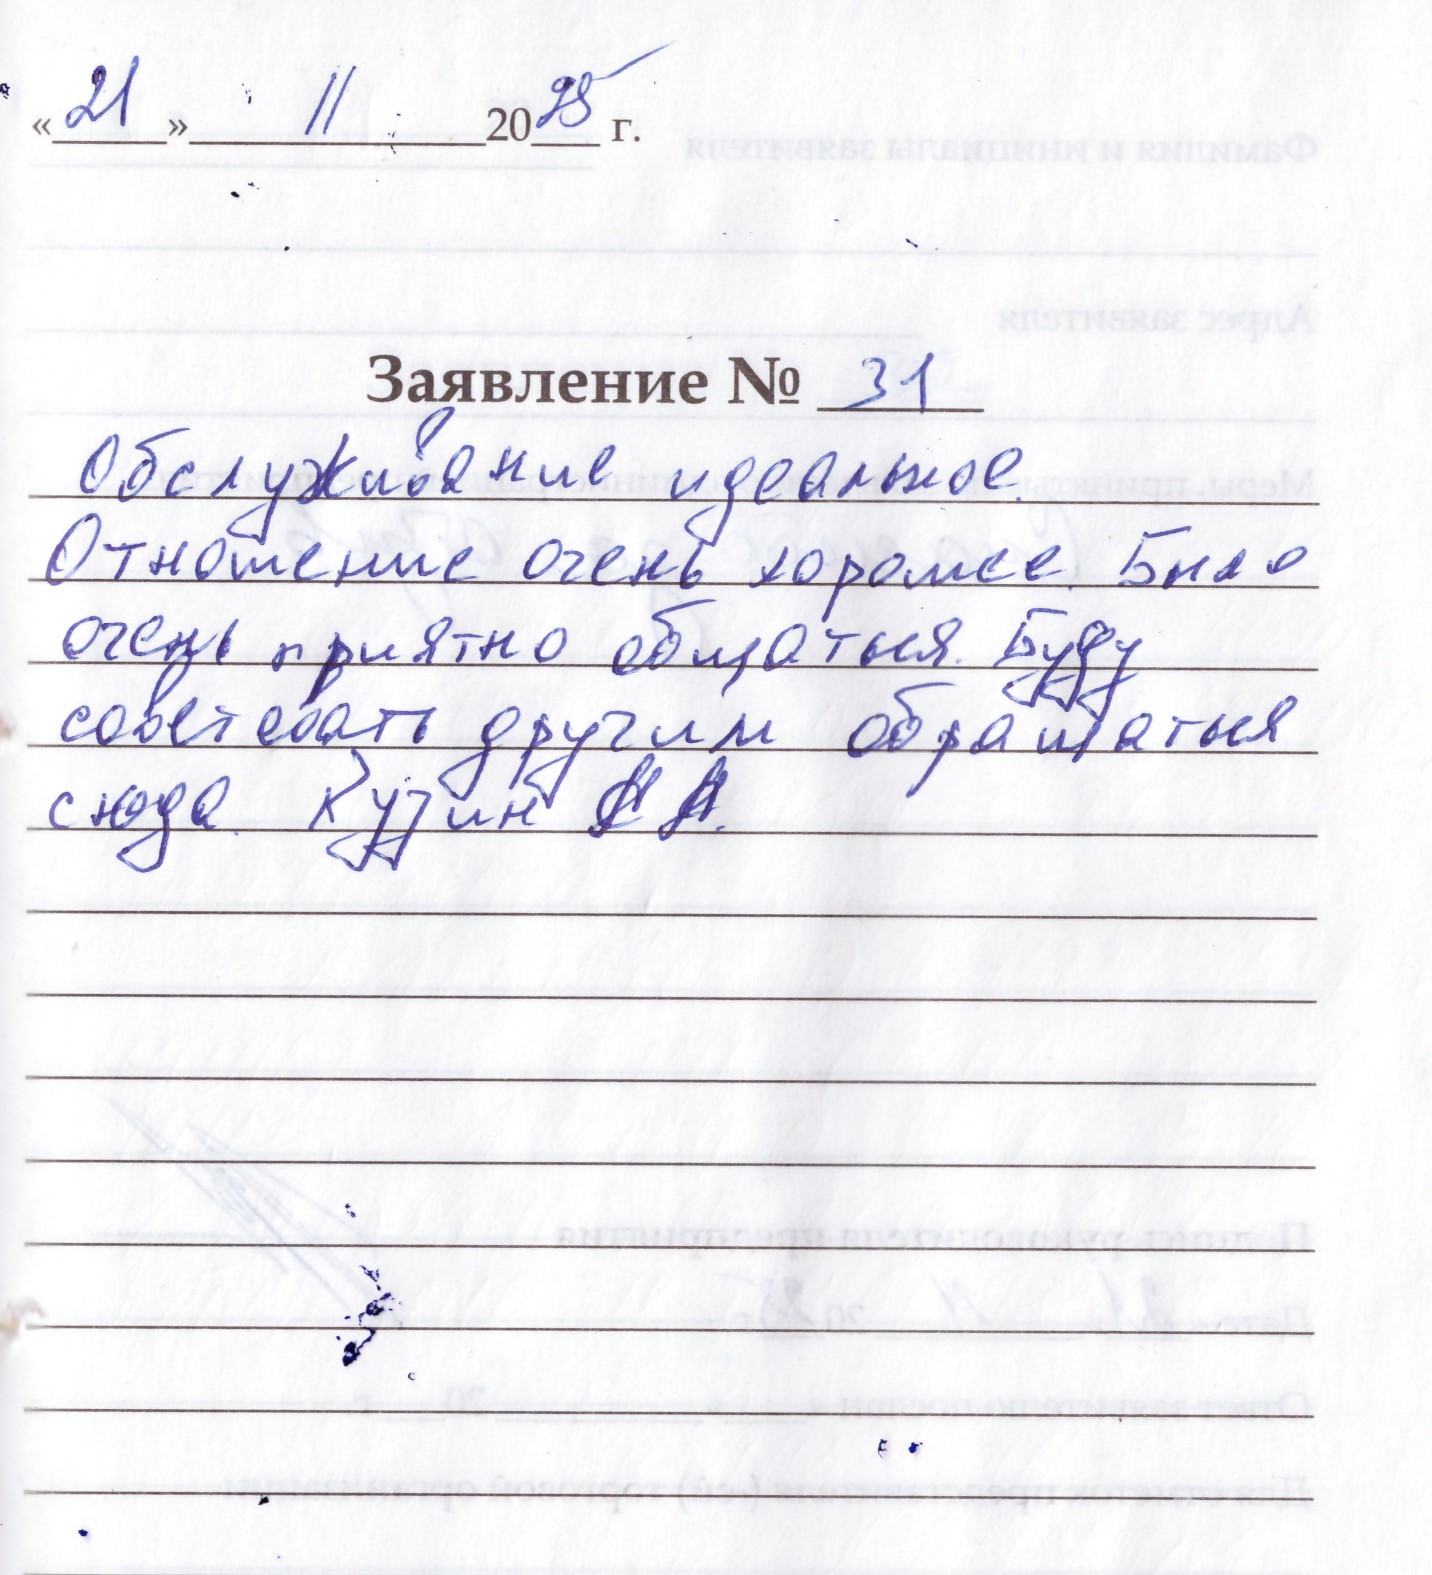 «21» 11 2025 г.
Заявление № 31
Обслуживание идеальное.
Отношение очень хорошее. Было
очень приятно общаться. Буду
советовать другим обращаться
сюда. Кузин